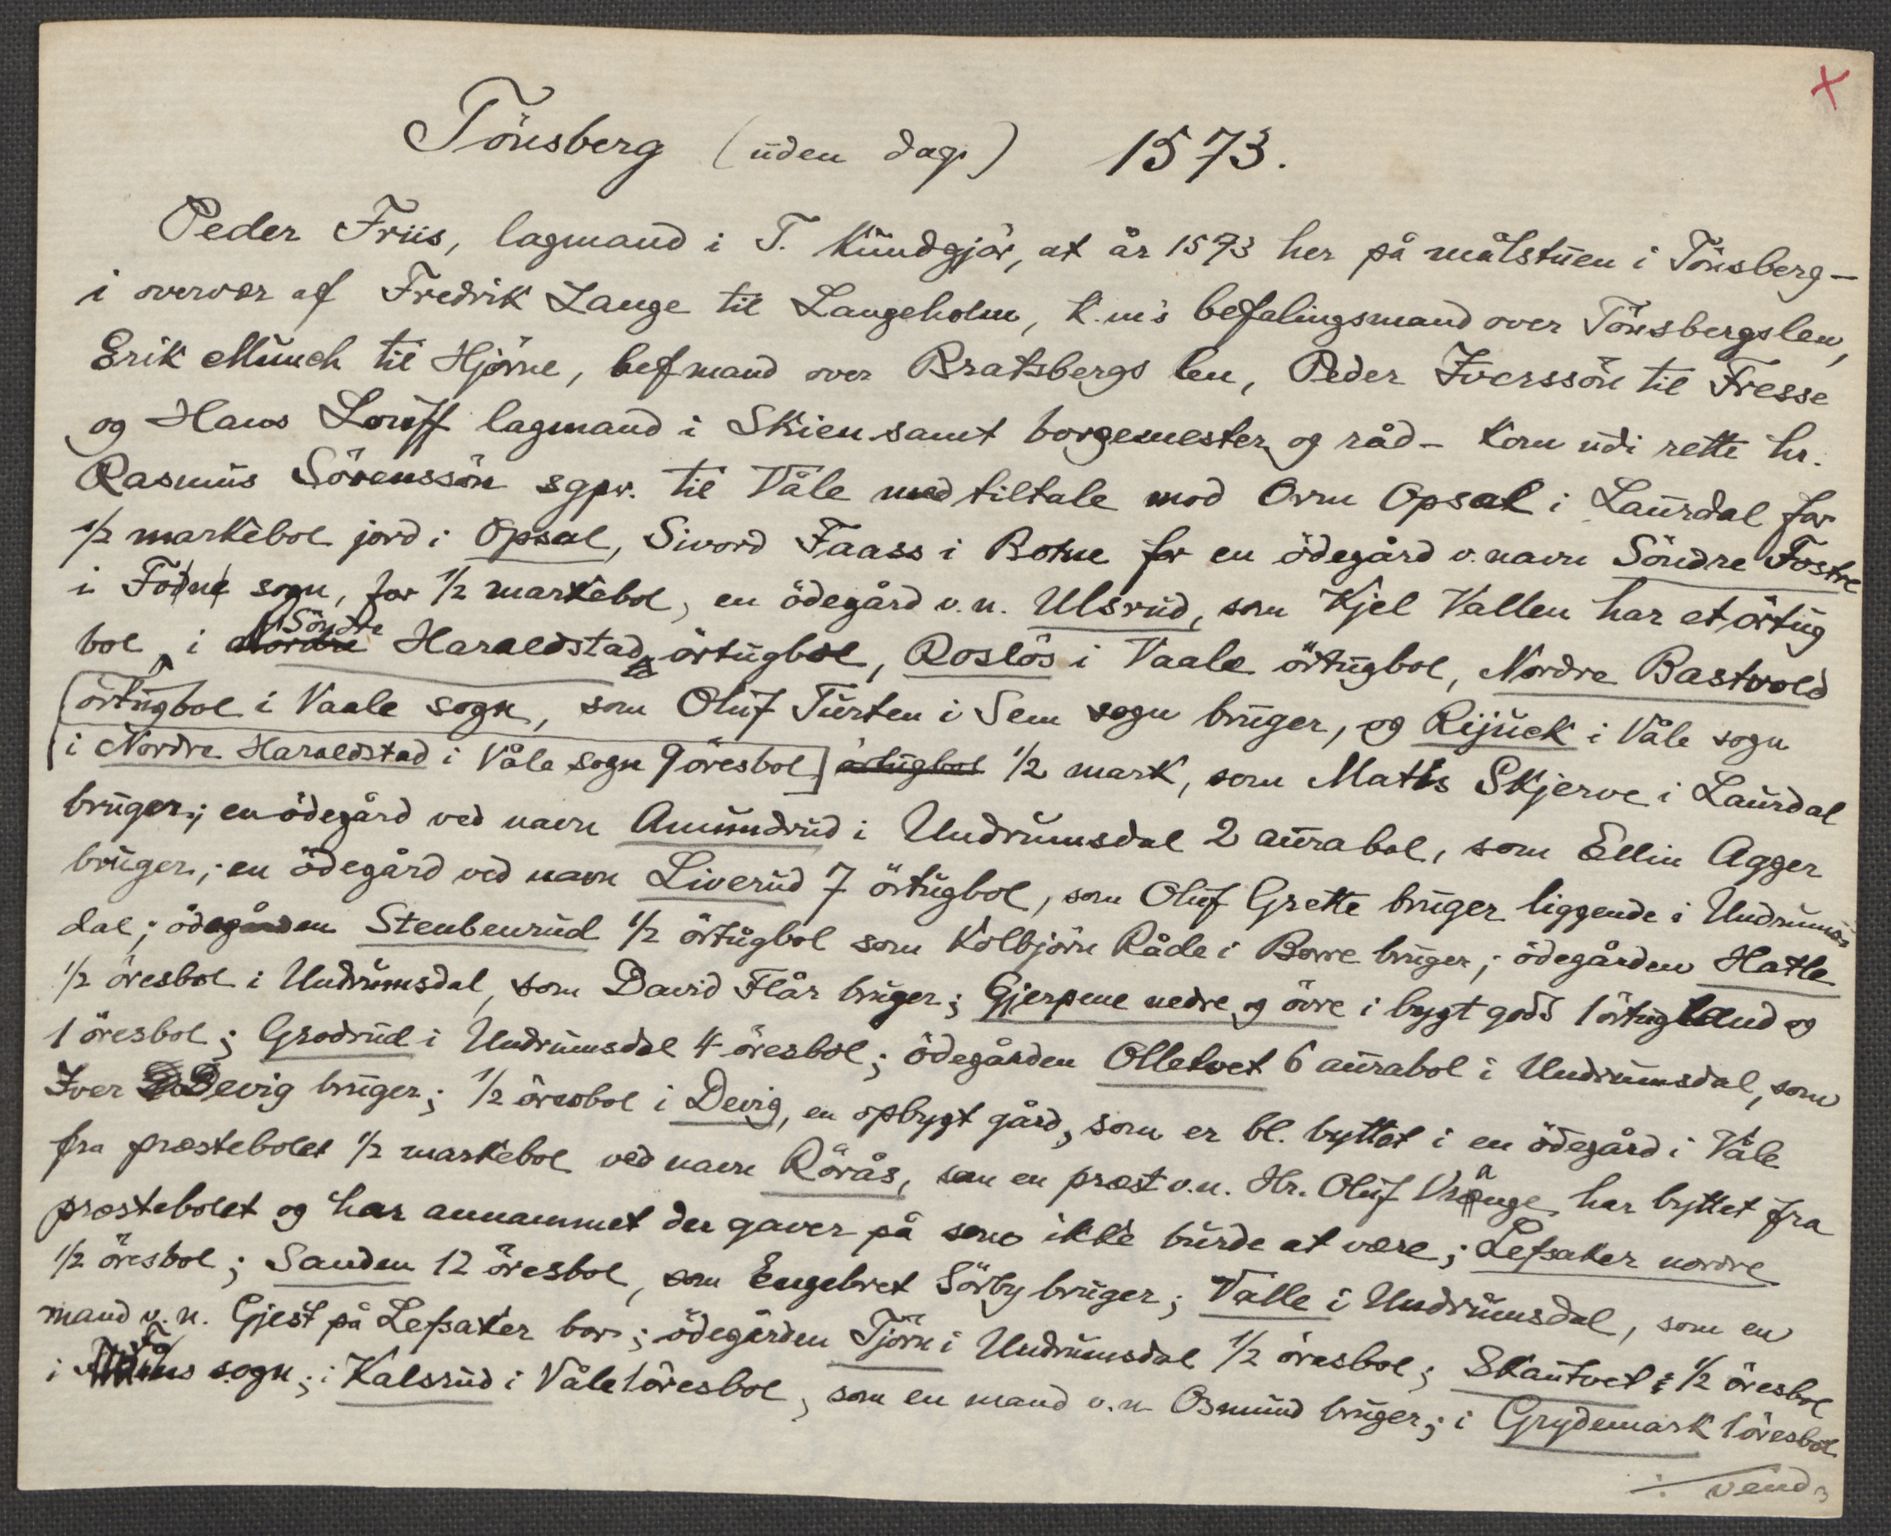 X
Tönsberg (uden dag) 1573.
Peder Friis, lagmand i T. kundgjör, at år 1573 her på målstuen i Tönsberg –
i overvær af Fredrik Lange til Langeholm, k.m's befalingsmand over Tönsbergslen,
Erik Munch til Hjörne, befmand over Bratsbergs len, Peder Iverssön til Fresse
og Hans Loruff lagmand i Skien samt borgemester og råd – kom udi rette hr.
Rasmus Sörenssön sgpr. til Våle med tiltale mod Orm Opsal i Laurdal for
1/2 markebol jord i Opsal, Sivord Faass i Botne for en ödegård v. navn Söndre Fostve
i sogn, for 1/2 markebol, en ödegård v.n. Ulsrud, som Kjel Vallen har et örtug
bol, i Nordre Söndre Haraldstad örtugbol, Roslös i Vaale örtugbol, Nordre Bastvold
[örtugbol i Vaale sogn, som Oluf Turten i Sem sogn bruger, og Rijuck i Våle sogn
i Nordre Haraldstad i Våle sogn 9 öresbol] örtugbol 1/2 mark, som Matis Skjerve i Laurdal
bruger; en ödegård ved navn Amundrud i Undrumsdal 2 aurabol, som Ellin Agger
bruger; en ödegård ved navn Liverud 7 örtugbol, som Oluf Grette bruger liggende i Undrums
dal; ödegården Stenbenrud 1/2 örtugbol som Kolbjörn Råde i Borre bruger; ödegården Hatle
1/2 öresbol i Undrumsdal, som David Flår bruger; Gjerpene nedre og övre i bygt gods 1 örtugland og
1 öresbol; Grodrud i Undrumsdal 4 öresbol; ödegården Olletvet 6 aurabol i Undrumsdal, som
Iver Devig bruger; 1/2 öresbol i Devig, en opbygt gård, som er bl. byttet i en ödegård i Våle
fra præstebolet 1/2 markebol ved navn Rörås, som en præst v.n. Hr. Oluf Vrånge har byttet fra
præstebolet og har annammet der gaver på som ikke burde at være; Lefsaker nordre
1/2 öresbol; Sanden 12 öresbol, som Engebret Sörby bruger; Valle i Undrumsdal, som en
mand v.n. Gjest på Lefsaker bor; ödegården Tjörn i Undrumsdal 1/2 öresbol; Skautvet 1/2 öresbol
i sogn; i Kalsrud i Våle 1 öresbol, som en mand v.n. Osmund bruger; i Grydemark 1 öresbol
÷ vend